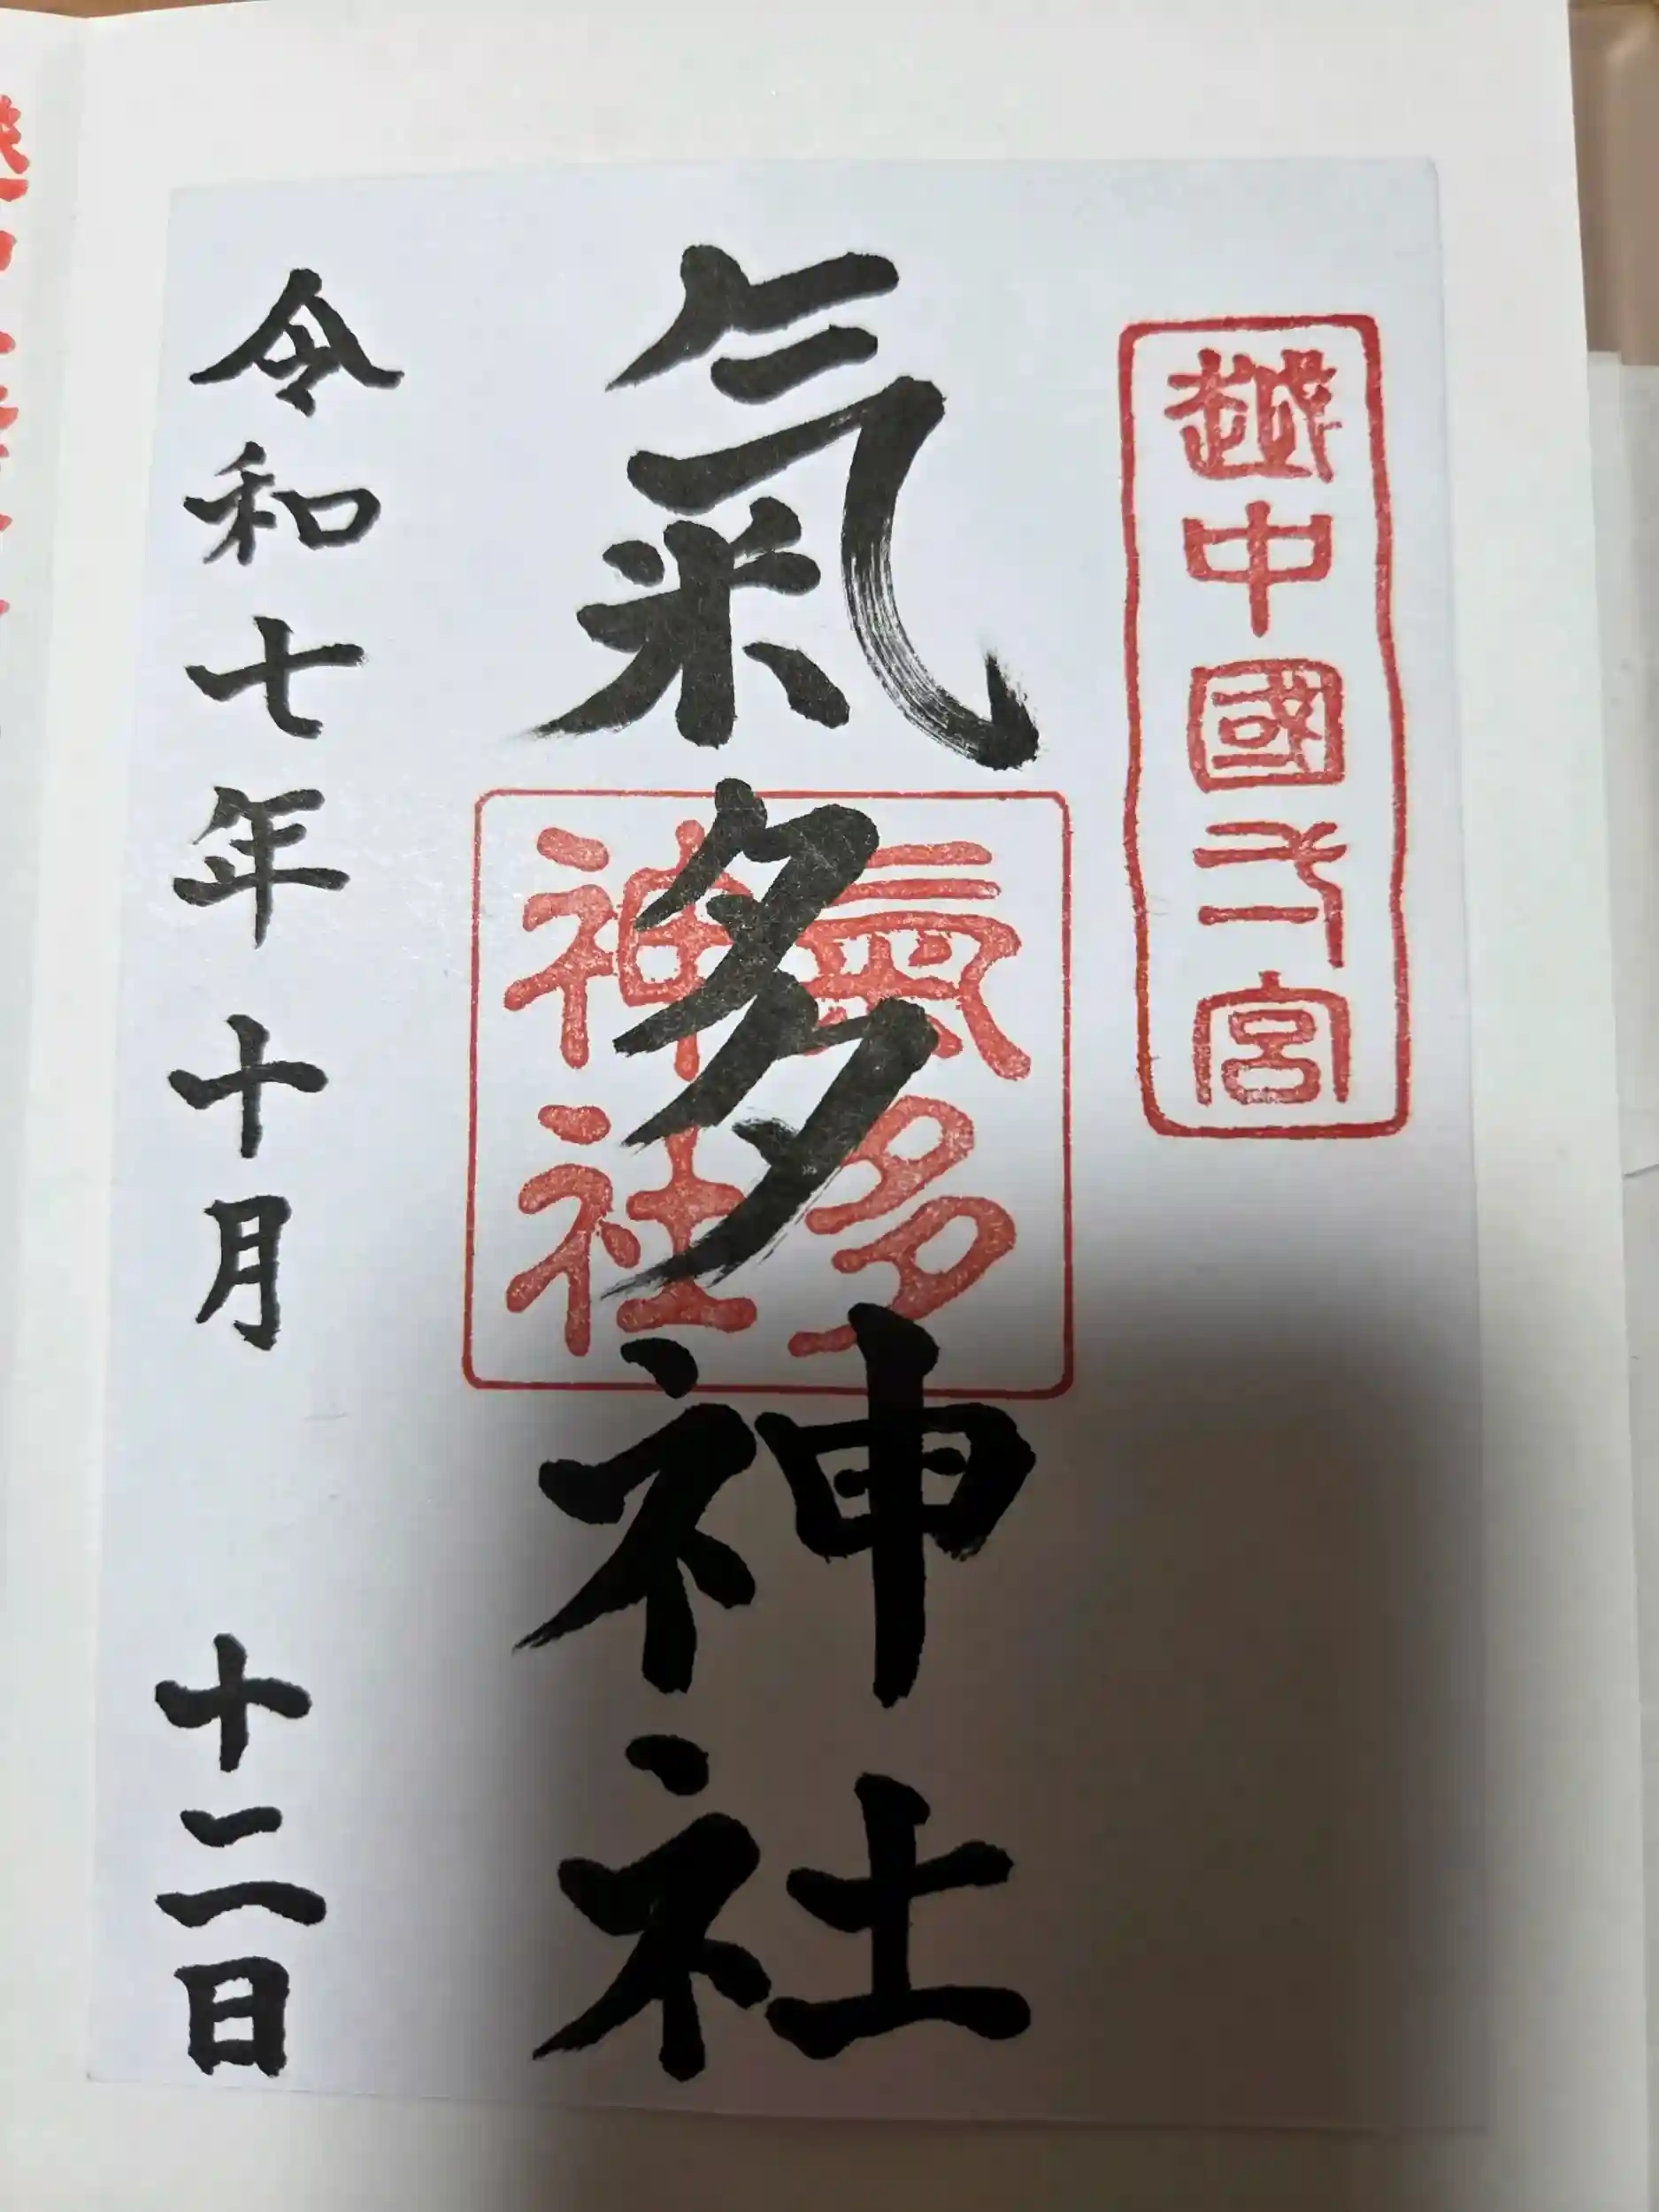 越中國一宮
氣多神社
氣多
神社
令和七年十月 十二日